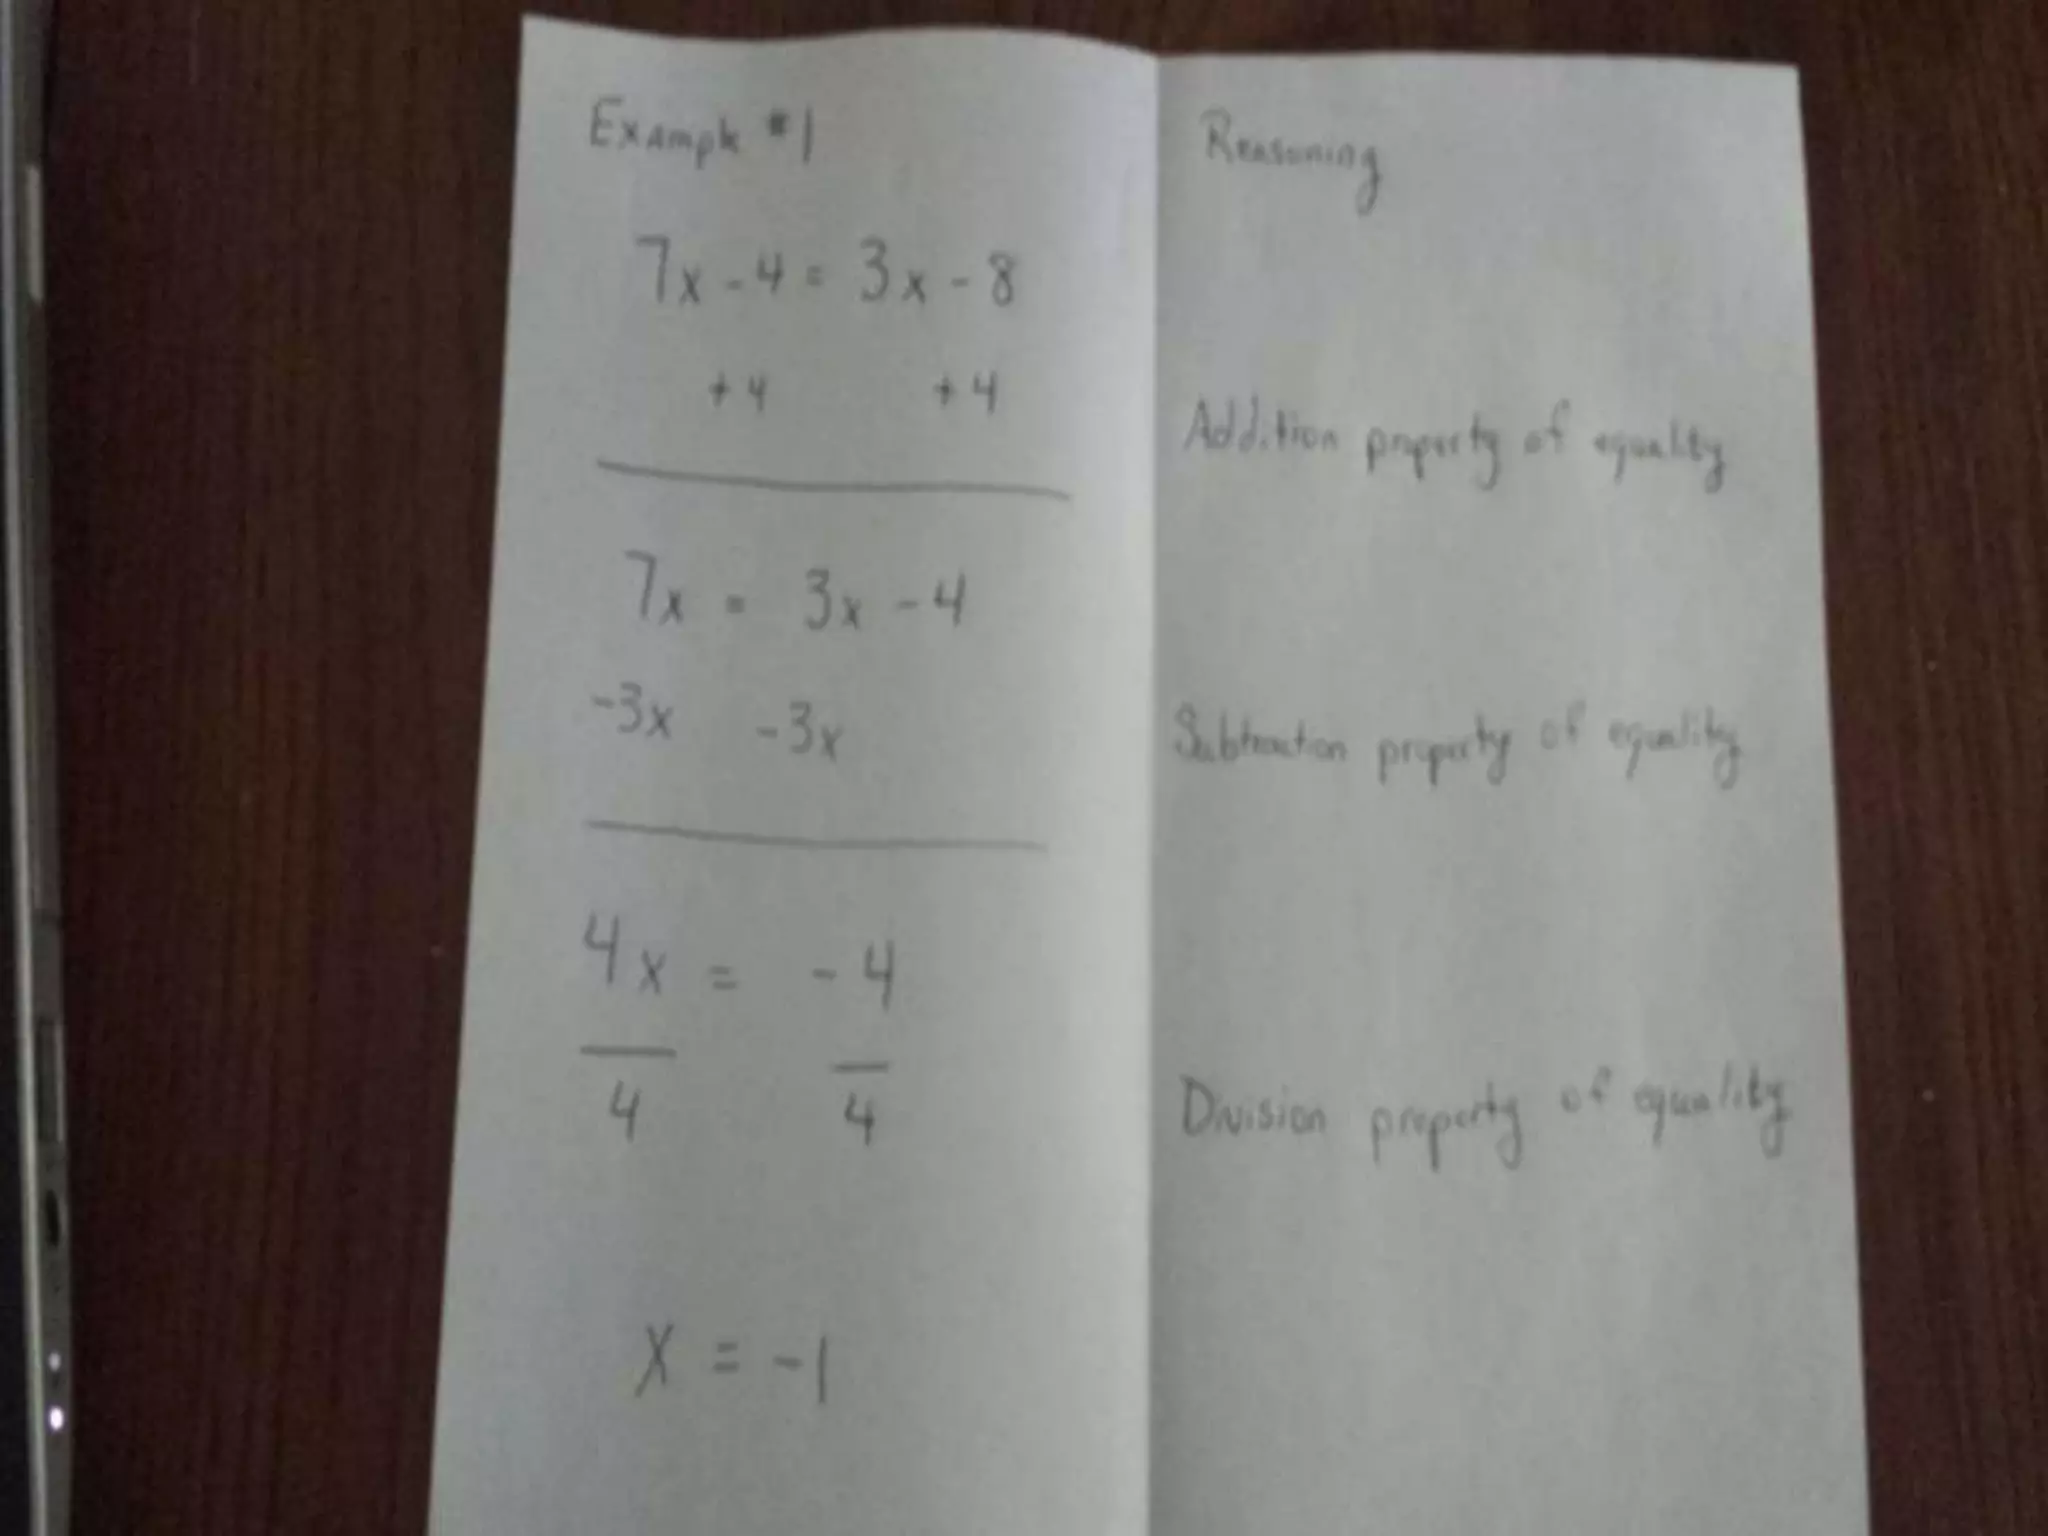 Example #1
Reasoning
7x - 4 = 3x - 8
+4 +4
Addition property of equality
7x = 3x - 4
-3x -3x
Subtraction property of equality
4x = -4
4 4
Division property of equality
x = -1